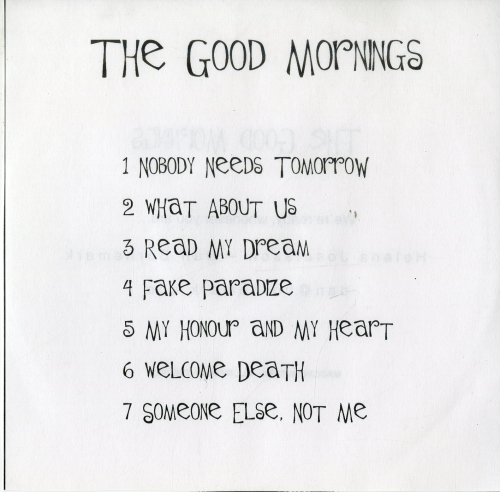 THE GOOD MORNINGS
1 NOBODY NEEDS TOMORROW
2 WHAT ABOUT US
3 READ MY DREAM
4 FAKE PARADIZE
5 MY HONOUR AND MY HEART
6 WELCOME DEATH
7 SOMEONE ELSE, NOT ME